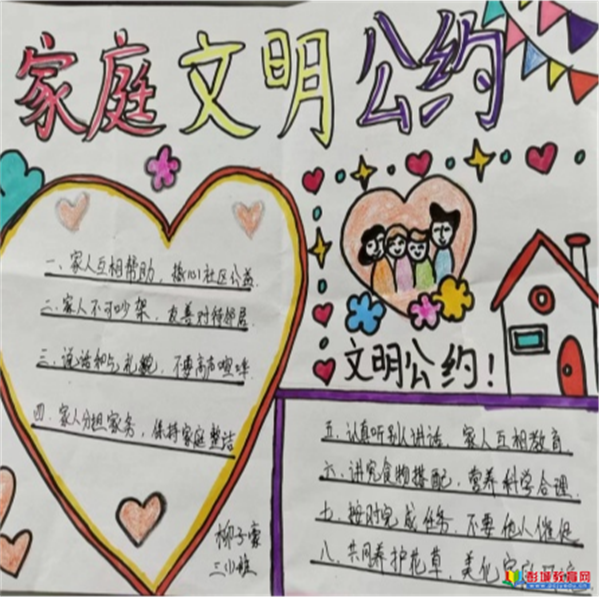 家庭文明公约
一、家人互相帮助，热心社区公益
二、家人不可吵架，友善对待邻居
三、说话和气礼貌，不要高声喧哗
四、家人分担家务，保持家庭整洁
文明公约！
五、认真听别人讲话，家人互相教育
六、讲究食物搭配，营养科学合理
七、按时完成任务，不要他人催促
八、共同养护花草，美化家庭
彭城教育网